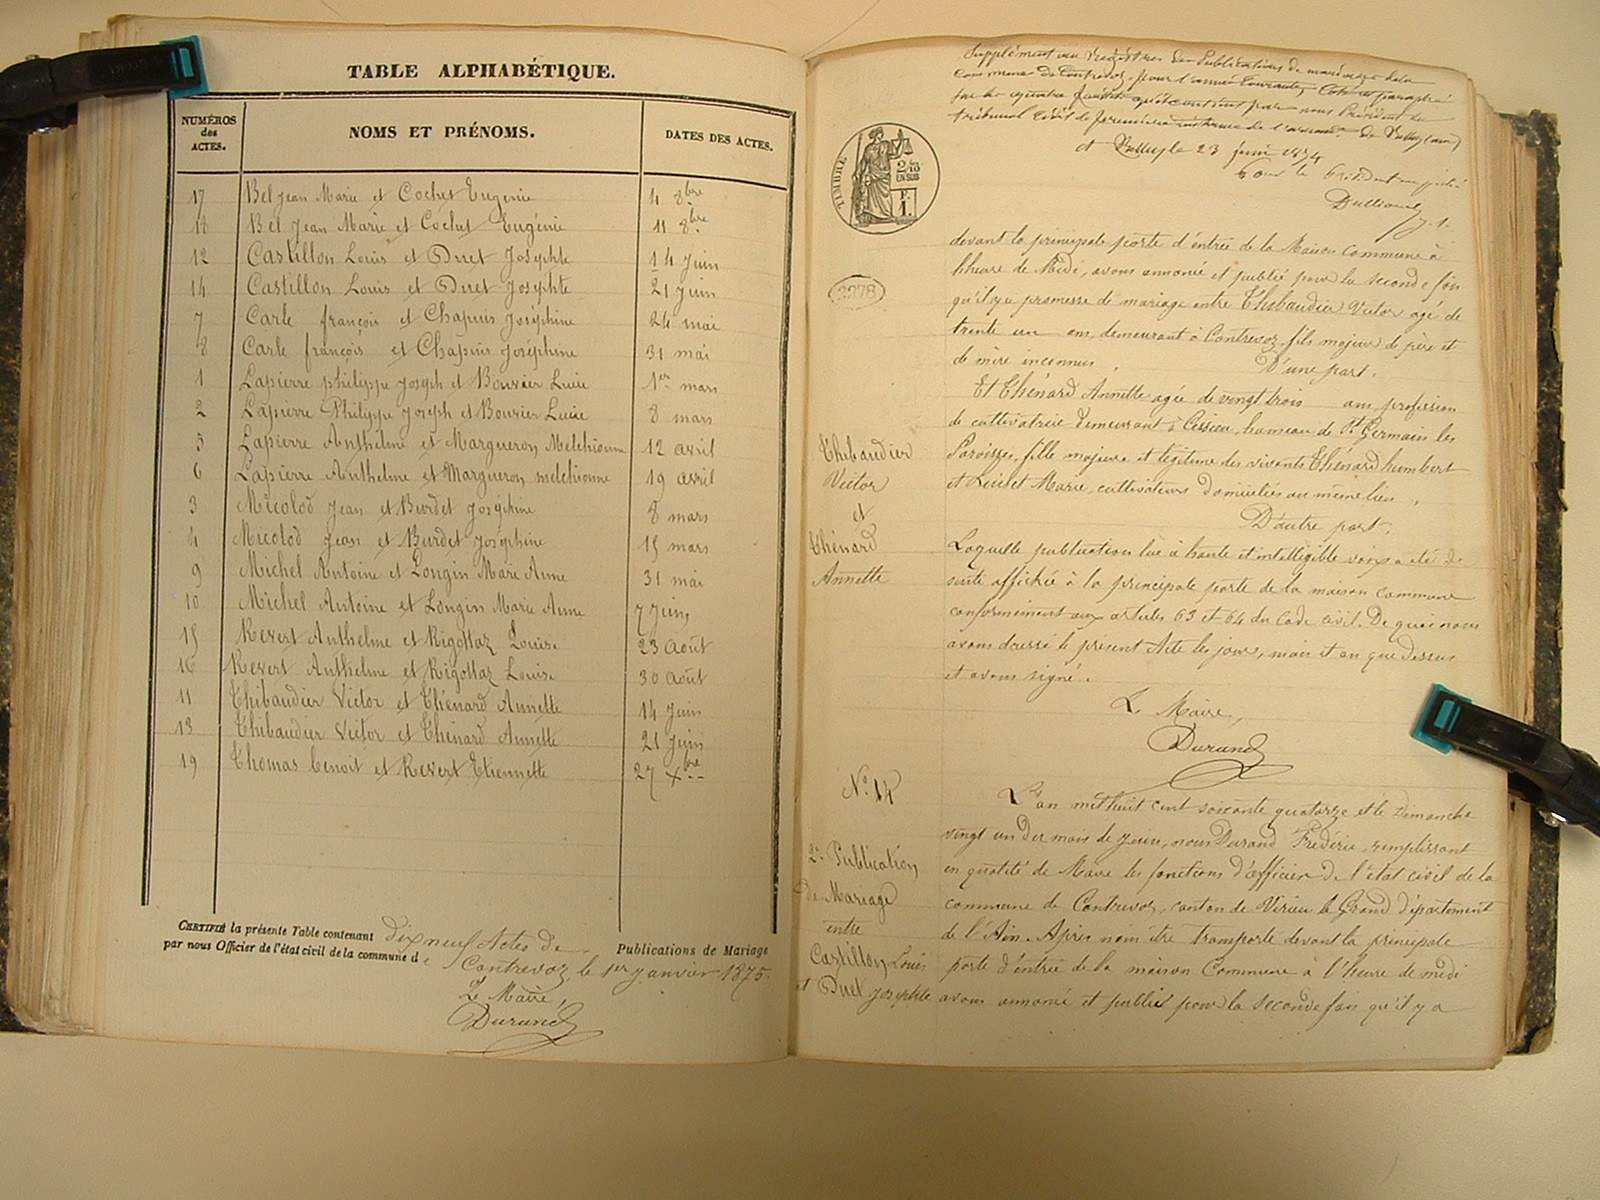 TABLE ALPHABÉTIQUE.
NUMÉROS des ACTES. NOMS ET PRÉNOMS. DATES DES ACTES.
17 Bel Jean Marie et Cochet Eugenie 4 8bre
18 Bel Jean Marie et Cochet Eugénie 11 8bre
12 Castillon Louis et Duet Josephte 14 Juin
14 Castillon Louis et Duet Josephte 21 Juin
7 Carle françois et Chapuis Joséphine 24 mai
8 Carle françois et Chapuis Joséphine 31 mai
1 Lapierre philippe Joseph et Bouvier Lucie 1er mars
2 Lapierre Philippe Joseph et Bouvier Lucie 8 mars
5 Lapierre Anthelme et Margueron Melchionne 12 avril
6 Lapierre Anthelme et Margueron melchionne 19 avril
3 Micolod Jean et Burdet Joséphine 8 mars
4 Micolod Jean et Burdet Joséphine 15 mars
9 Michel Antoine et Longin Marie Anne 31 mai
10 Michel Antoine et Longin Marie Anne 7 Juin
15 Revert Anthelme et Rigottaz Louise 23 Août
16 Revert Anthelme et Rigottaz Louise 30 Août
11 Thibaudier Victor et Thénard Annette 14 Juin
13 Thibaudier Victor et Thénard Annette 21 Juin
19 Thomas benoit et Revert Etiennette 27 Xbre
CERTIFIÉ la présente Table contenant dix neuf Actes de Publications de Mariage
par nous Officier de l'état civil de la commune de Contrevoz, le 1er janvier 1875.
Le Maire,
Durand
Supplément au Registres des Publications de mariage de la
commune de Contrevoz, pour l'année courante, Coté et paraphé
par nous Président du
tribunal Civil de première instance de Belley (ain)
Belley le 23 juin 1874
Pour le Président empêché
TIMBRE
2/10 EN SUS
F. 1.
3278
devant la principale porte d'entrée de la Maison commune à
l'heure de Midi, avons annoncé et publié pour la seconde fois
qu'il y a promesse de mariage entre Thibaudier Victor agé de
trente un ans, demeurant à Contrevoz, fils majeur de père et
de mère inconnus. D'une part.
Et Thénard Annette agée de vingt trois ans, profession
de cultivatrice demeurant à Cessieu, hameau de St Germain les
Paroisses, fille majeure et légitime des vivants Thénard humbert
et Marie, cultivateurs domiciliés au même lieu,
D'autre part.
Thibaudier
Victor
et
Thénard
Annette
Laquelle publication lue à haute et intelligible voix a été de
suite affichée à la principale porte de la maison commune
conformément aux articles 63 et 64 du Code civil. De quoi nous
avons dressé le présent Acte les jour, mois et an que dessus
et avons signé.
Le Maire,
Durand
No 14
2e Publication
de Mariage
entre
Castillon Louis
et Duet Josephte
L'an mil huit cent soixante quatorze et le Dimanche
vingt un du mois de Juin, nous Durand Frédéric, remplissant
en qualité de Maire les fonctions d'officier de l'état civil de la
commune de Contrevoz, canton de Virieu le Grand département
de l'Ain. Après nous être transporté devant la principale
porte d'entrée de la maison Commune à l'heure de midi
avons annoncé et publié pour la seconde fois qu'il y a